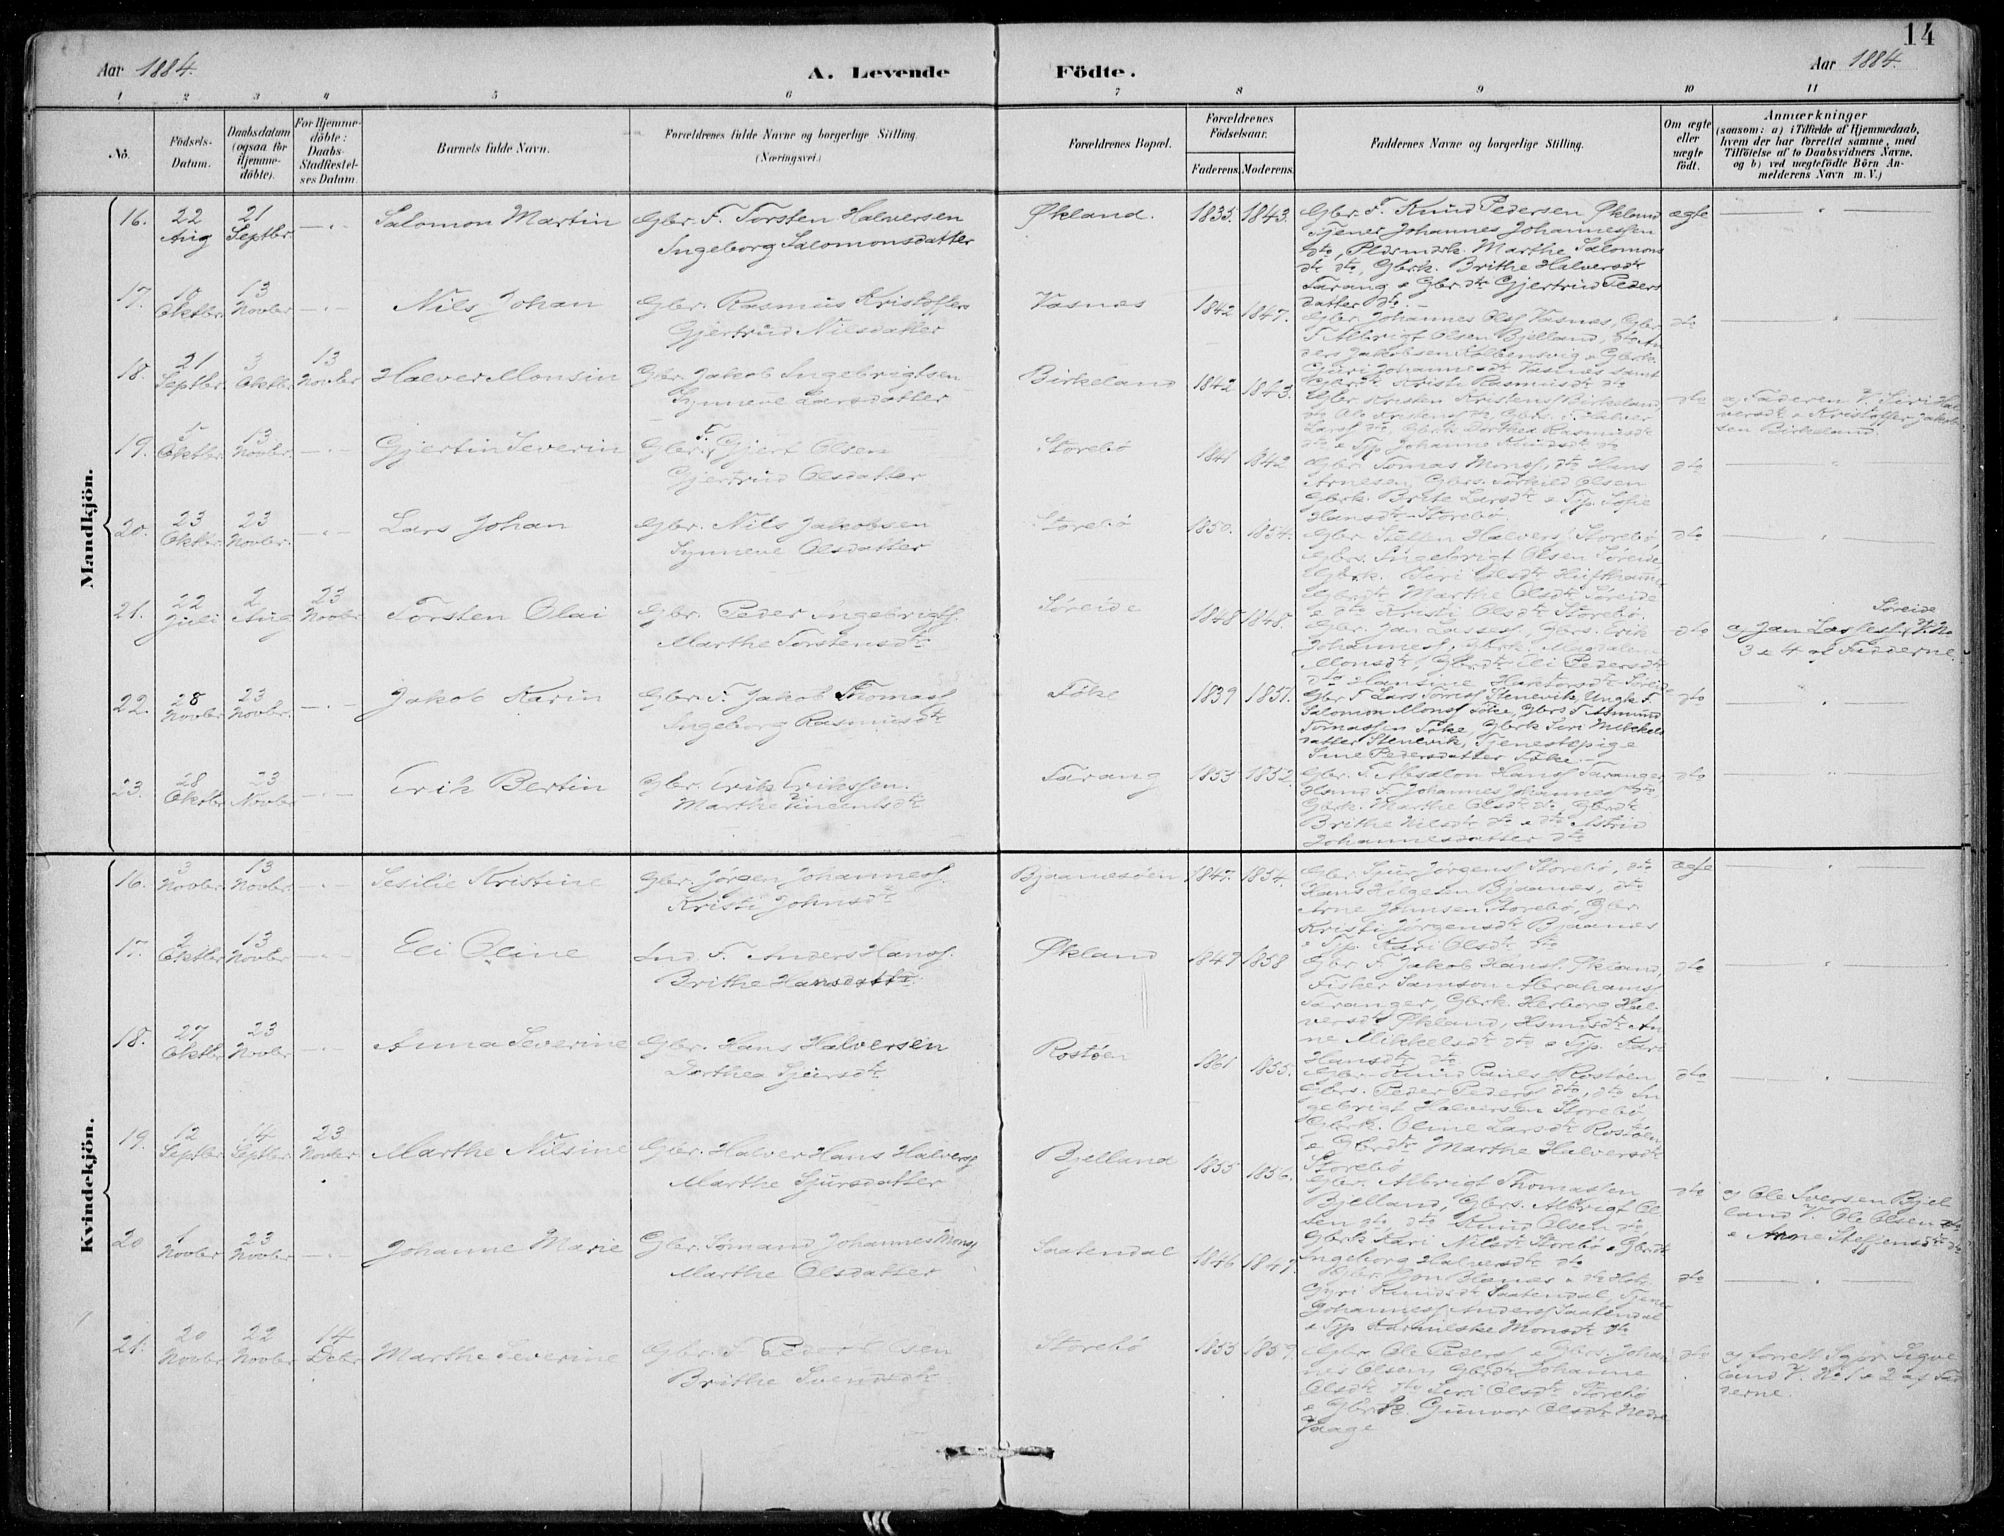 14
Aar 1884.
A. Levende
Födte.
Aar 1884.
1 2 3 4 5 6 7 8 9 10 11
No.
Födsels-Datum.
Daabsdatum (ogsaa for Hjemme-döbte).
For Hjemme-döbte: Daabs-Stadfæstel-ses Datum.
Barnets fulde Navn.
Forældrenes fulde Navne og borgerlige Stilling. (Næringsvei.)
Forældrenes Bopæl.
Forældrenes Födselsaar.
Faderens. Moderens.
Faddernes Navne og borgerlige Stilling.
Om ægte eller uægte födt.
Anmærkninger (saasom: a) i Tilfælde af Hjemmedaab, hvem der har forrettet samme, med Tilföielse af to Daabsvidners Navne, og b) ved uægtefödte Börn An-melderens Navn m. V.)
Mandkjön.
16. 22 Aug 21 Septbr. Salomon Martin
Gbr. F. Torsten Halversen
Ingeborg Salomonsdatter
Økland. 1835. 1843.
Gbr. F. Knud Pedersen Økland
Tjener Johannes Johannessen
dto, Marthe Salomons
dtr dto, Gbrk. Brithe Halversdtr
Tarang & Gbrdtr Gjertrud Peders
datter dto.
ægte
17. 10 Oktbr. 13 Novbr Nils Johan
Gbr. Rasmus Kristoffers
Gjertrud Nilsdatter
Vasnes 1842 1847.
Gbr. Johannes Olsf Vasnes, Gbr
F Albrigt Olsen Bjelland, dto An
ders Jakobsen Kolbensvig & Gbrk.
Guri Johannesdtr Vasnes samt
Gbrdtr Kristi Rasmusdtr dto
dto
18. 21 Septbr. 3 Oktbr 13 Novbr Halver Monsin
Gbr. Jakob Ingebrigtsen
Synneve Larsdatter
Birkeland 1842 1843.
Gbr Kristen Kristensf Birkeland
dto
a) Faderen V. Siri Hal
versdtr & Kristoffer Jakob
sen Birkeland.
19. 5 Oktbr. 13 Novbr. Gjertin Severin
Gbr. F. Gjert Olsen
Gjertrud Olsdatter
Storebö 1841 1842
Gbr. Tomas Monsf, dto Hans
Arnesen, Gbrs. Torkild Olsen
Gbrk. Brite Larsdtr & Tjp. Sofie
Hansdtr Storebö
dto
20. 23 Oktbr. 23 Novbr. Lars Johan
Gbr. Nils Jakobsen
Synneve Olsdatter
Storebö 1850. 1854.
Gbr Steffen Halversf Storebö,
Gbrs. Ingebrigt Olsen Söreide
Gbrk. Siri Olsdtr Hufthamer
Gbrdtr Marthe Olsdtr Söreide
& dto Kristi Olsdtr Storebö.
dto
21. 22 Juli 2 Aug 23 Novbr Torsten Olai
Gbr. Peder Ingebrigtsf.
Marthe Torstensdtr
Söreide 1848 1848.
Gbr. Jan Lassesf, Gbrs. Erik
Johannesf, Gbrk. Magdalen
Monsdtr, Gbrdtr Eli Pedersdtr
dto
Söreide
3 & 4 af Fadderne.
22. 28 Novbr 23 Novbr. Jakob Karin
Gbr. F. Jakob Thomasf
Ingeborg Rasmusdtr
Töke 1839 1851.
Gbr F Lars Tomesf Stenevik, Ungk. F.
Salomon Monsf Töke, Gbrs F Asmund
Tomassen Töke, Gbrk Siri Mikkels
datter Stenevik, Tjenestepige
Sine Pedersdatter Töke.
dto
23. 28 Oktbr 23 Novbr Erik Bertin
Gbr. Erik Erikssen.
Marthe Vincentsdtr
Tarang 1853 1852.
Gbr. F. Absalon Hansf Taranger
Hsmd F. Johannes Johannesf dto,
Gbrk. Marthe Olsdtr dto, Gbrdtr
Brithe Nilsdtr dto & dto Astrid
Johannesdatter dto
dto
Kvindekjön.
16. 3 Novbr 13 Novbr. Sesilie Kristine
Gbr. Jörgen Johannesf.
Kristi Johnsdtr
Bjaanesöen 1847. 1854.
Gbr. Sjur Jörgensf Storebö, dto
Hans Helgesen Bjaanes, dto
Arne Johnsen Storebö, Gbr
Kristi Jörgensdtr Bjaanes
& Tjp. Kari Olsdtr dto
ægte
17. 2 Oktbr 13 Novbr Eli Oline
Ind. F. Anders Hansf.
Brithe Hansdatter
Økland 1849 1858
Gbr. F. Jakob Hansf. Økland,
Fisker Samson Abrahamsf
Taranger, Gbrk. Herborg Hal
versdtr Økland, Hsmdsdtr An
ne Mikkelsdtr dto & Tjp. Kari
Hansdtr dto
dto
18. 27 Oktbr 23 Novbr Anna Severine
Gbr. Hans Halversen
Dorthea Sjursdtr
Rostöen 1861 1855.
Gbr. Knud Paulsf Rostöen
Gbrs. Peder Pedersf dto, dto In
gebrigt Halversen Storebö,
Gbrk. Oline Larsdtr Rostöen
& Gbrdtr Marthe Halversdtr
Storebö
dto
19. 12 Septbr 14 Septbr 23 Novbr Marthe Nilsine
Gbr. Halver Hans Halversf
Marthe Sjursdatter
Bjelland 1855 1856.
Gbr. Albrigt Thomassen
Bjelland, Gbrs. Albrigt Ol
sen dto, dto Knud Olsen dto,
Gbrk Kari Nilsdtr Storebö & Gbrdtr
Ingeborg Halversdtr dto
dto
a) Ole Iversen Bjel
land V. Ole Olsen dto
& Arne Steffensdtr dto
20 1 Novbr 23 Novbr. Johanne Marie
Gbr. Sömand Johannes Monsf
Marthe Olsdatter
Saatendal 1846 1847.
Guri Knudsdtr Saatendal, Tjener
Johannesf Andersf Saatendal
dto
21. 20 Novbr 22 Novbr 14 Debr Marthe Severine
Gbr. F Peder Olsen
Brithe Svendsdtr
Storebö 1853 1859.
Gbr. Ole Pedersf & Gbrs. Johan
nes Olsen, Gbrdtr Johanne
Olsdtr dto Siri Olsdtr Storebö
& Gbrk. Gunvor Olsdtr Nedre
Vaage
dto
a) forrett Sgpr. Sigve
land V. No 1 & 2 af Fad
derne.